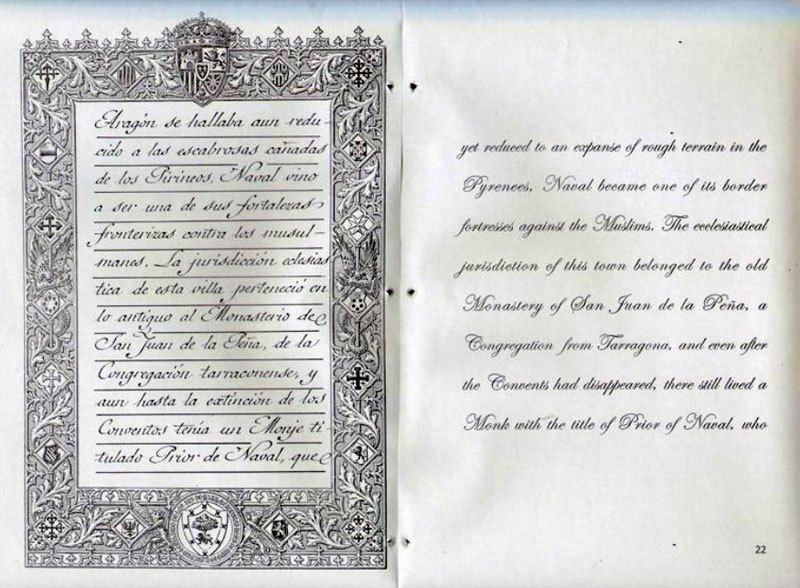 Aragón se hallaba aun redu-
cido a las escabrosas cañadas
de los Pirineos, Naval vino
a ser una de sus fortalezas
fronterizas contra los musul-
manes. La jurisdicción eclesias
tica de esta villa perteneció en
lo antiguo al Monasterio de
San Juan de la Peña, de la
Congregación tarraconense, y
aun hasta la extinción de los
Conventos tenía un Monje ti-
tulado Prior de Naval, que
yet reduced to an expanse of rough terrain in the
Pyrenees, Naval became one of its border
fortresses against the Muslims. The ecclesiastical
jurisdiction of this town belonged to the old
Monastery of San Juan de la Peña, a
Congregation from Tarragona, and even after
the Convents had disappeared, there still lived a
Monk with the title of Prior of Naval, who
22